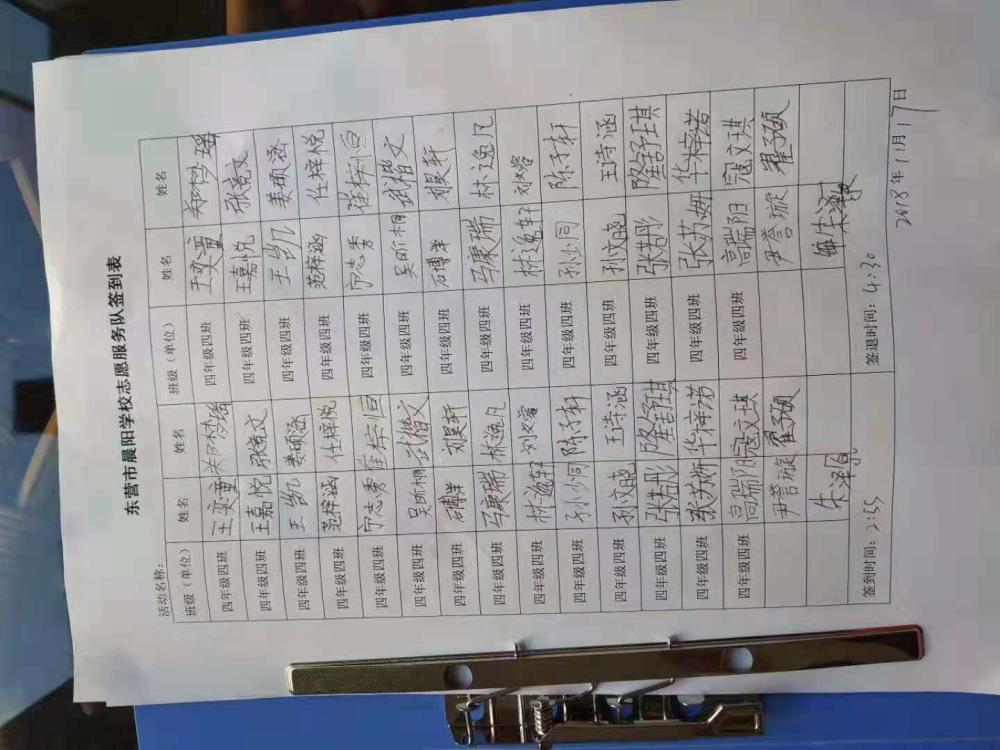 东营市晨阳学校志愿服务队签到表
活动名称:
班级（单位） 姓名 姓名 班级（单位） 姓名 姓名
四年级四班 王奕童 郑梦瑶 四年级四班 王奕童 郑梦瑶
四年级四班 王嘉悦 张竞文 四年级四班 王嘉悦 张竞文
四年级四班 王凯 姜硕涵 四年级四班 王凯 姜硕涵
四年级四班 范梓涵 任梓悦 四年级四班 范梓涵 任梓悦
四年级四班 宁志秀 崔梓恒 四年级四班 宁志秀 崔梓恒
四年级四班 吴昕桐 武楷文 四年级四班 吴昕桐 武楷文
四年级四班 四年级四班 石博洋
四年级四班 马康瑞 林逸凡 四年级四班 马康瑞 林逸凡
四年级四班 林逸轩 四年级四班 林逸轩
四年级四班 孙少同 陈子轩 四年级四班 孙少同 陈子轩
四年级四班 孙文晓 王诗涵 四年级四班 孙文晓 王诗涵
四年级四班 张若彤 隆舒琪 四年级四班 张若彤 隆舒琪
四年级四班 张苏妍 华梓诺 四年级四班 张苏妍 华梓诺
四年级四班 高瑞阳 寇文琪 四年级四班 高瑞阳 寇文琪
尹誉璇 翟子硕 尹誉璇 翟子硕
签到时间: 2:55 签退时间: 4:30
2018年11月17日